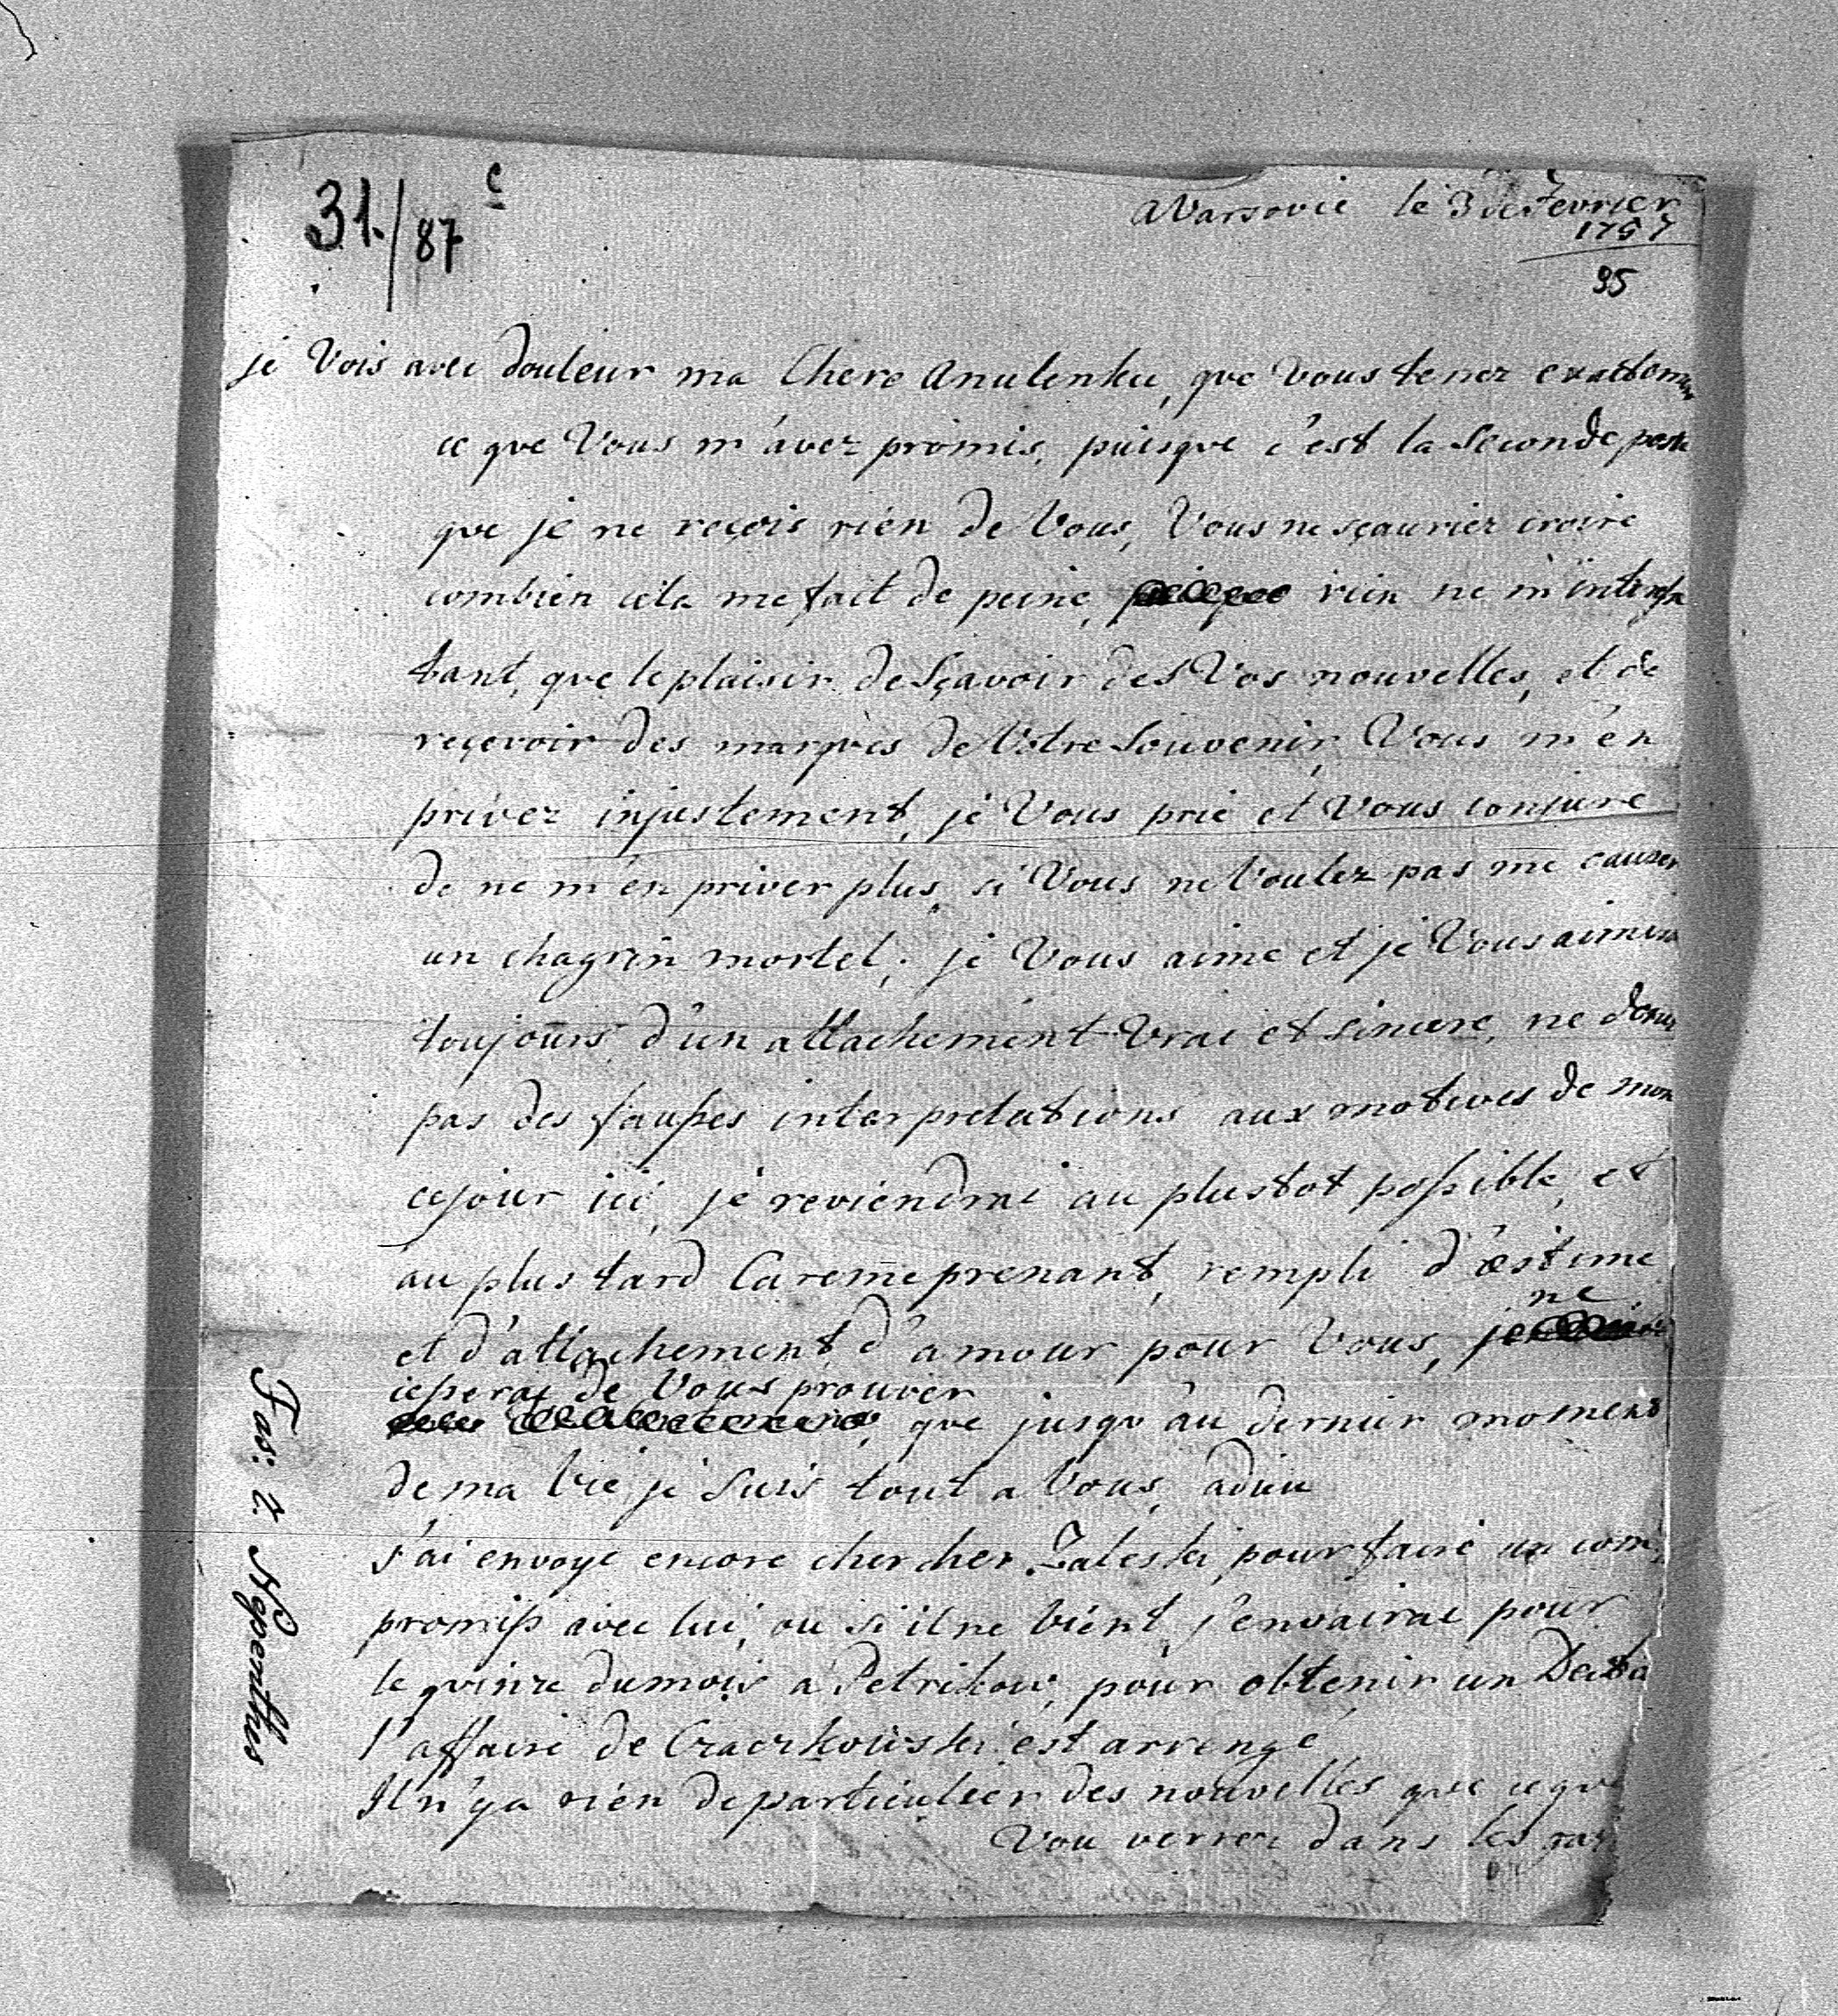 31./87 c
a Varsovie le 3 de Fevrier
1757
95
je Vois avec douleur ma Chere Anulenku, que Vous tenez exattemen
ce que Vous m'avez promis, puisque c'est la Seconde poste
que je ne reçois rien de Vous, Vous ne sçauriez croire
combien cela me fait de peine, rien ne m'interesse
tant, que le plaisir de Sçavoir des Vos nouvelles, et de
reçevoir des marques de Votre Souvenir, Vous m'en
privez injustement, je Vous prie et Vous conjure
de ne m'en priver plus, si Vous ne Voulez pas me causer
un chagrin mortel; je Vous aime et je Vous aimera
toujours d'un attachement Vrai et sincere, ne donez
pas des fausses interpretations aux motives de mon
cejour ici, je reviendrai au plustot possible, et
au plus tard Careme prenant, rempli d'estime
ne
et d'attachement, d'amour pour Vous, je
cesserai de Vous prouver
que jusqu'au dernier moment
de ma Vie je Suis tout a Vous, adieu
j'ai envoyé encore chercher Zaleski, pour faire un com
promiss avec lui, ou si il ne Vient, j'envairai pour
le quinze du mois a Petrikow, pour obtenir un
l'affaire de Czaczkowski est arrengé
Il n'ya rien de particulier des nouvelles que ce que
Vou verrez dans les
Fas: 2. Nepenthes